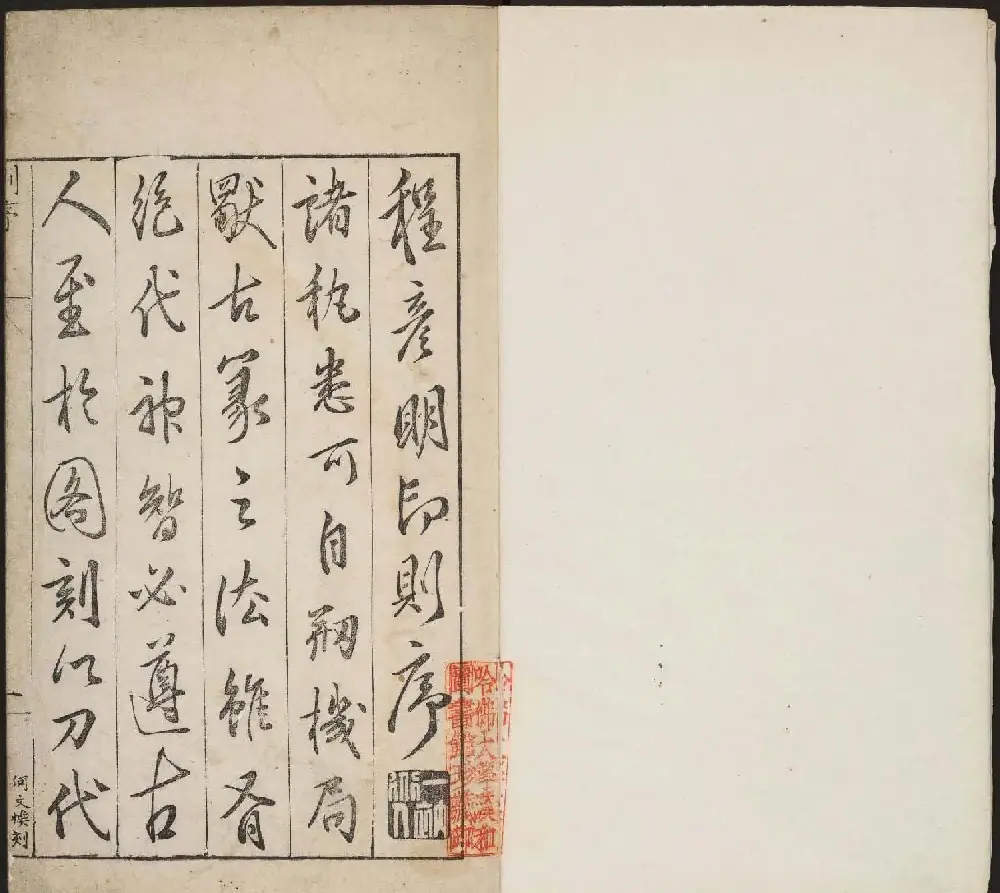 程彥明印則序
諸稅悉可自刱機局
獸古篆之法雖有
絕代神智必遵古
人至於圖刻以刀代
則序
一
何文煥刻
哈佛大學漢和
圖書館珍藏印